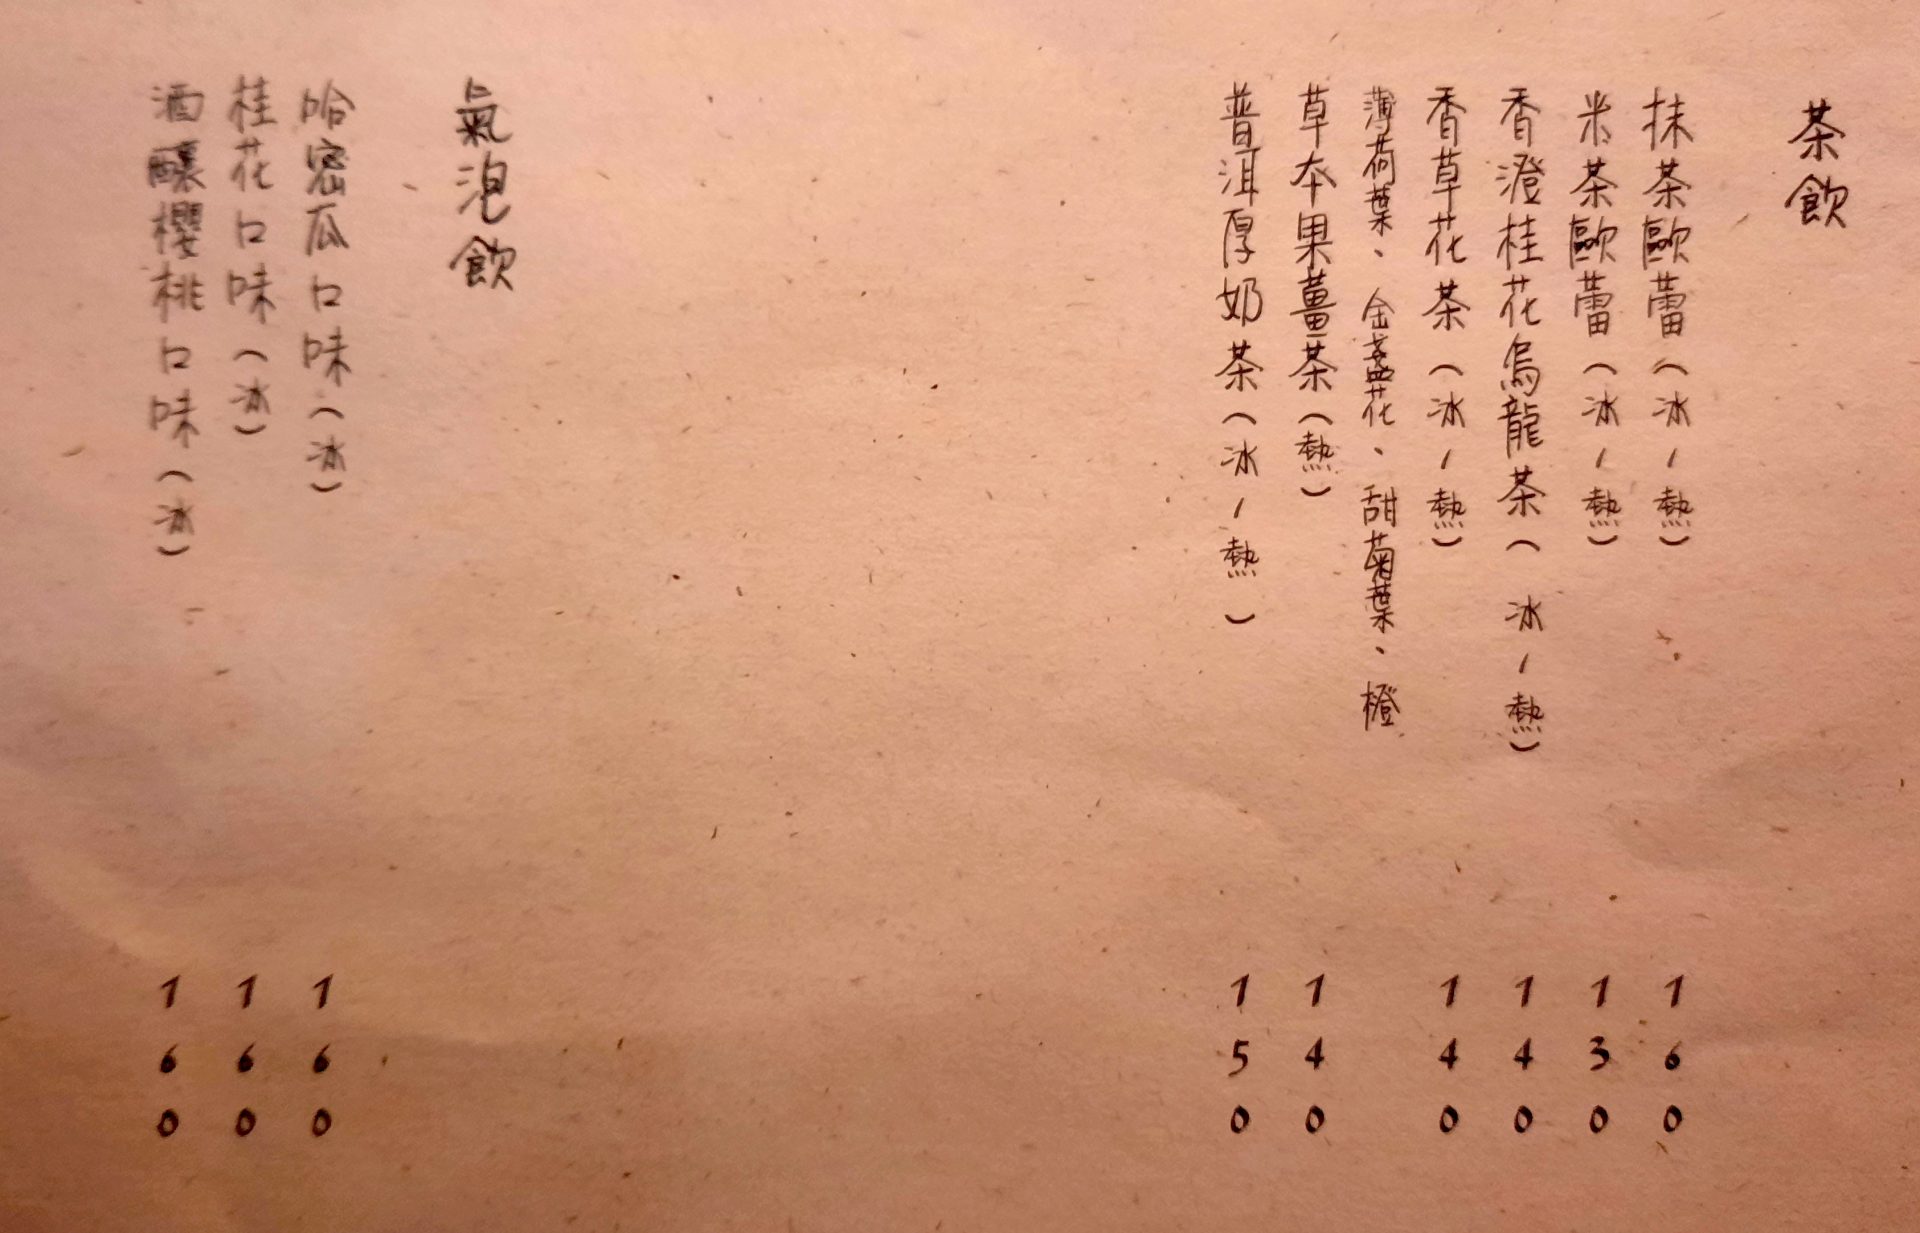 茶飲
抹茶歐蕾(冰/熱) 160
米茶歐蕾(冰/熱) 130
香澄桂花烏龍茶(冰/熱) 140
香草花茶(冰/熱) 140
薄荷葉、金盞花、甜菊葉、橙
草本果薑茶(熱) 140
普洱厚奶茶(冰/熱) 150
氣泡飲
哈密瓜口味(冰) 160
桂花口味(冰) 160
酒釀櫻桃口味(冰) 160